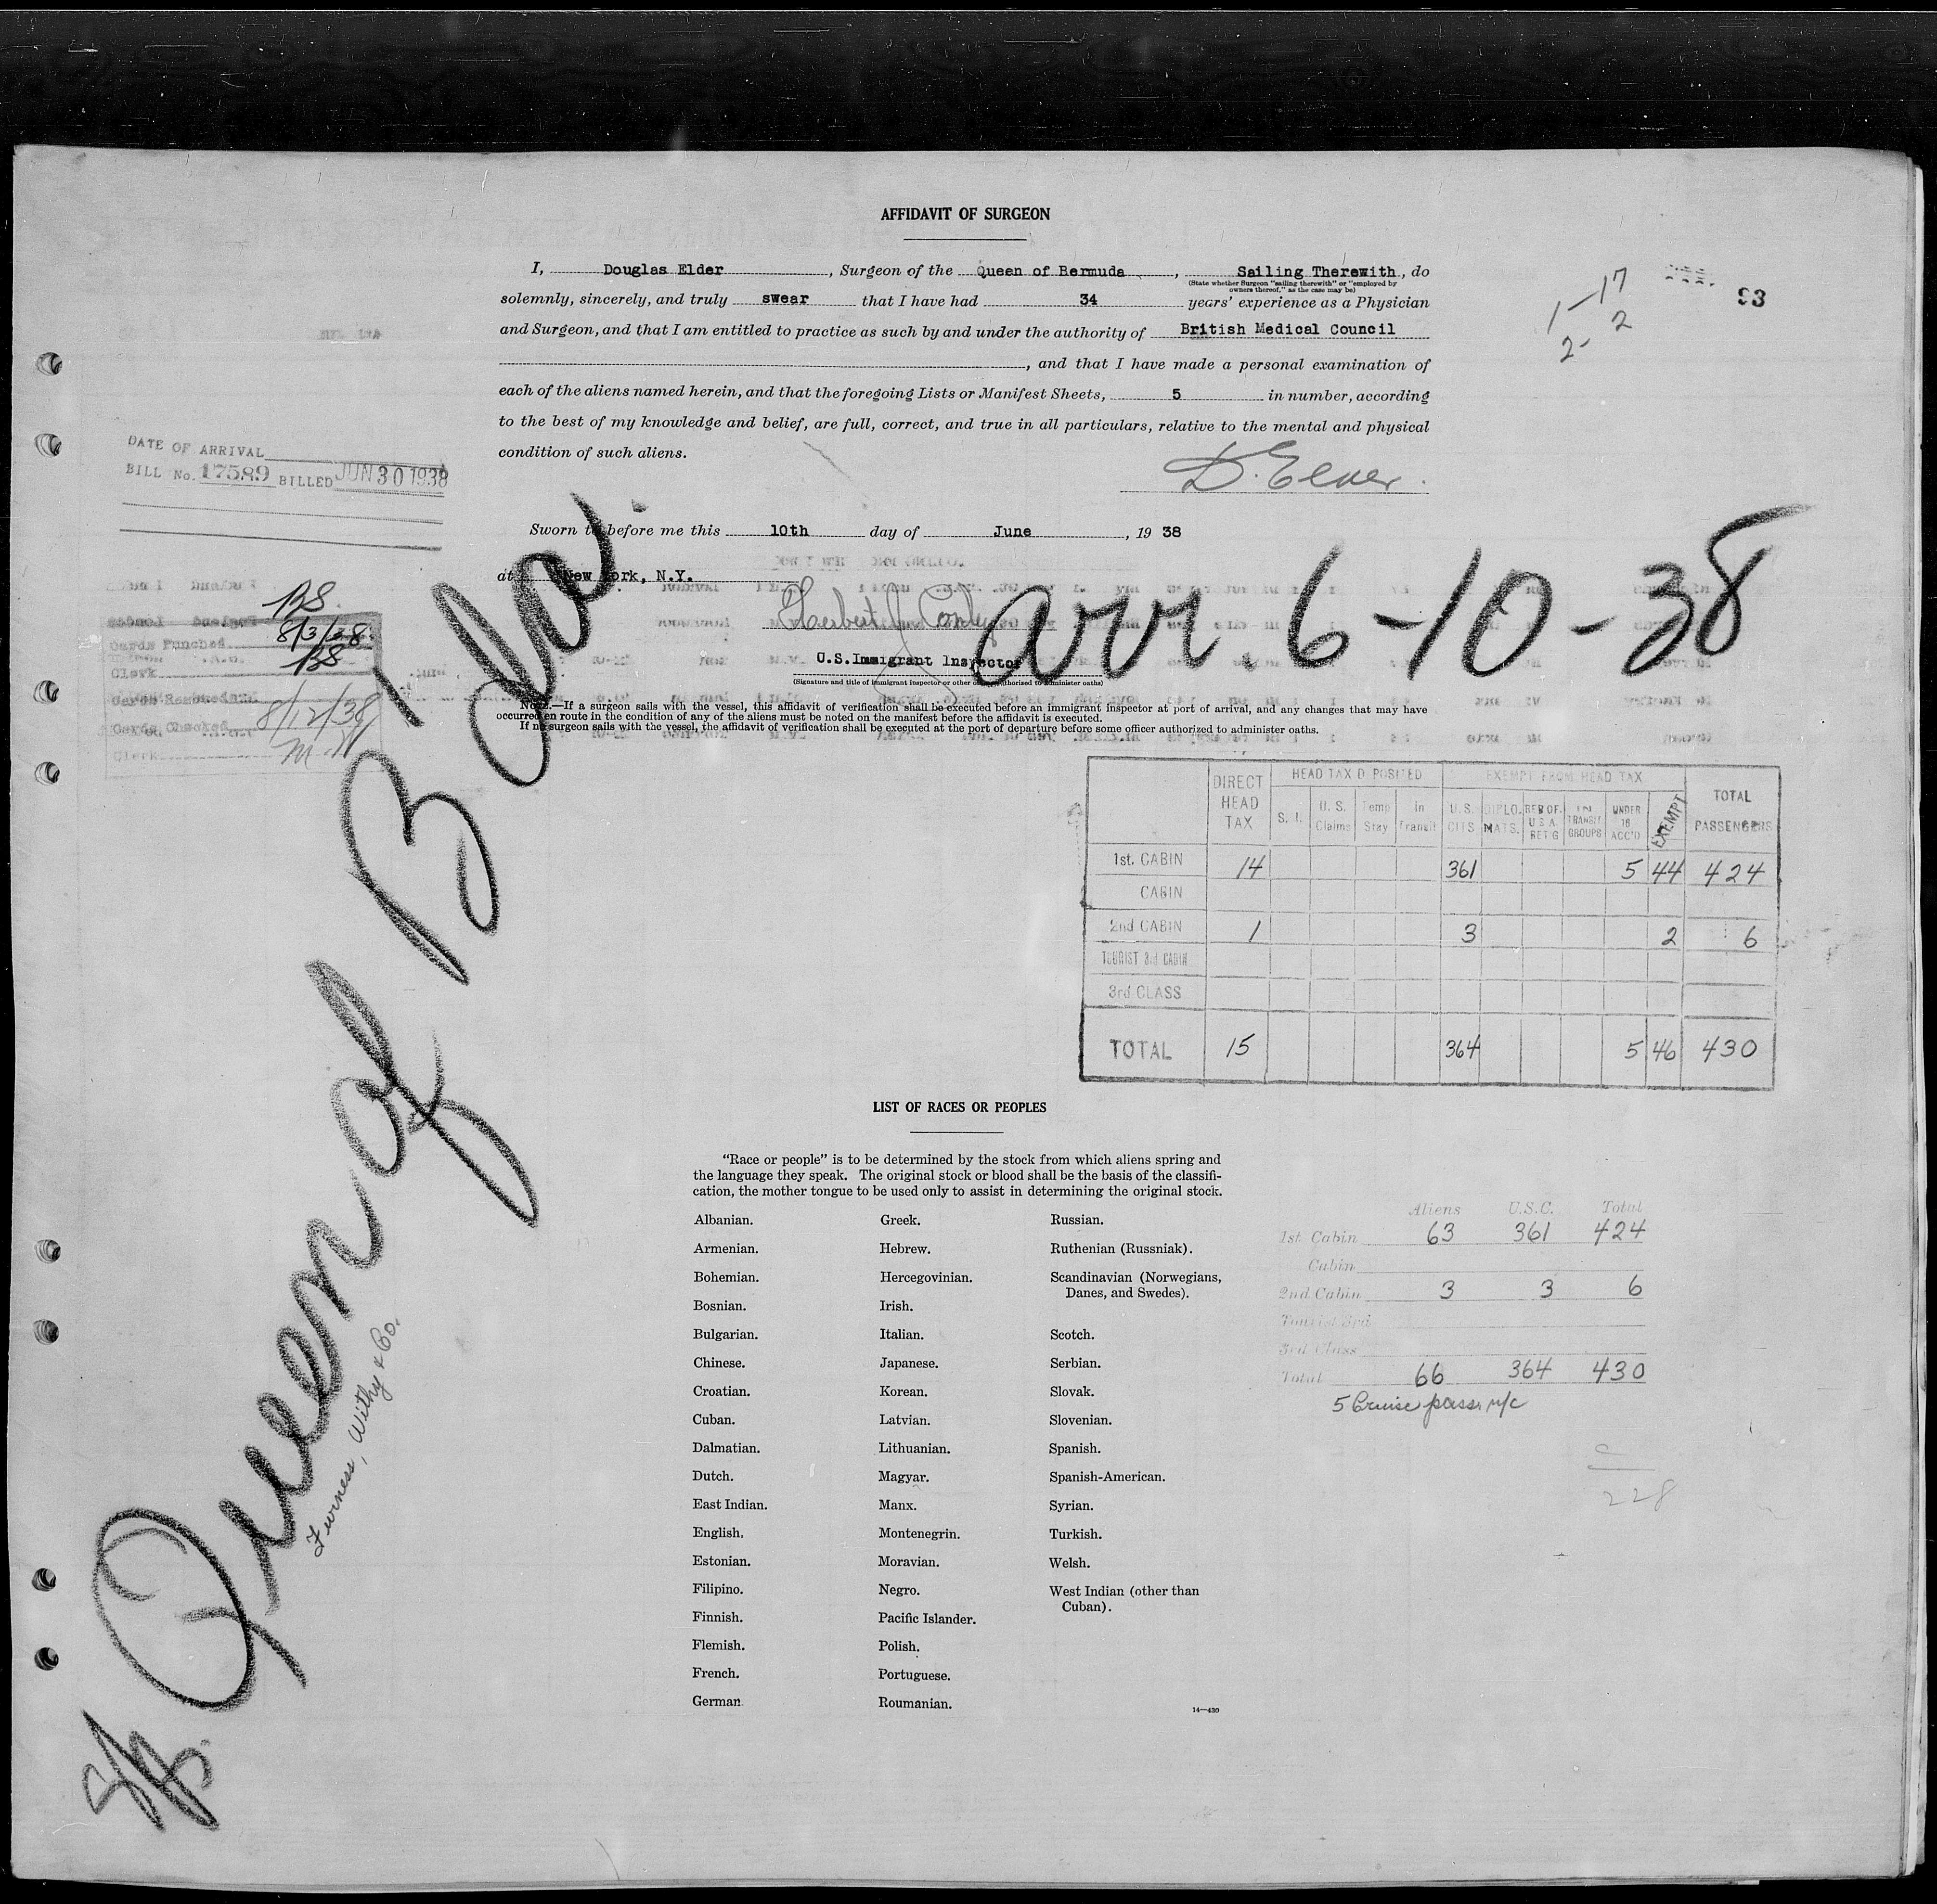 AFFIDAVIT OF SURGEON
I, Douglas Elder, Surgeon of the Queen of Bermuda, Sailing Therewith, do
(State whether Surgeon "sailing therewith" or "employed by
owners thereof," as the case may be)
solemnly, sincerely, and truly swear that I have had 34 years' experience as a Physician
and Surgeon, and that I am entitled to practice as such by and under the authority of British Medical Council
, and that I have made a personal examination of
each of the aliens named herein, and that the foregoing Lists or Manifest Sheets, 5 in number, according
to the best of my knowledge and belief, are full, correct, and true in all particulars, relative to the mental and physical
condition of such aliens.
D. Elder.
1-17
2-2
93
DATE OF ARRIVAL
BILL No. 17589 BILLED JUN 30 1938
Sworn to before me this 10th day of June, 19 38
at New York, N.Y.
Herbert J Conly
U.S.Immigrant Inspector
(Signature and title of immigrant inspector or other officer authorized to administer oaths)
arr. 6-10-38
BS
8/3/38
Cards Punched
BS
Clerk
8/12/38
Cards Checked
Clerk
NOTE.—If a surgeon sails with the vessel, this affidavit of verification shall be executed before an immigrant inspector at port of arrival, and any changes that may have
occurred en route in the condition of any of the aliens must be noted on the manifest before the affidavit is executed.
If no surgeon sails with the vessel, the affidavit of verification shall be executed at the port of departure before some officer authorized to administer oaths.
S/S. Queen of B'da.
Furness, Withy & Co.
DIRECT HEAD TAX HEAD TAX D POSITED EXEMPT FROM HEAD TAX TOTAL PASSENGERS
S. I. U. S. Claims Temp Stay In Transit U. S. CITS DIPLO. MATS. RES OF. U S A. RET G IN TRANSIT GROUPS UNDER 16 ACC'D EXEMPT
1st. CABIN 14 361 5 44 424
CABIN
2nd CABIN 1 3 2 6
TOURIST 3rd CABIN
3rd CLASS
TOTAL 15 364 5 46 430
LIST OF RACES OR PEOPLES
"Race or people" is to be determined by the stock from which aliens spring and
the language they speak. The original stock or blood shall be the basis of the classifi-
cation, the mother tongue to be used only to assist in determining the original stock.
Albanian.
Armenian.
Bohemian.
Bosnian.
Bulgarian.
Chinese.
Croatian.
Cuban.
Dalmatian.
Dutch.
East Indian.
English.
Estonian.
Filipino.
Finnish.
Flemish.
French.
German
Greek.
Hebrew.
Hercegovinian.
Irish.
Italian.
Japanese.
Korean.
Latvian.
Lithuanian.
Magyar.
Manx.
Montenegrin.
Moravian.
Negro.
Pacific Islander.
Polish.
Portuguese.
Roumanian.
Russian.
Ruthenian (Russniak).
Scandinavian (Norwegians,
Danes, and Swedes).
Scotch.
Serbian.
Slovak.
Slovenian.
Spanish.
Spanish-American.
Syrian.
Turkish.
Welsh.
West Indian (other than
Cuban).
14—430
Aliens U.S.C. Total
1st Cabin 63 361 424
Cabin
2nd Cabin 3 3 6
Tourist 3rd
3rd Class
Total 66 364 430
5 Cruise pass. n/c
228